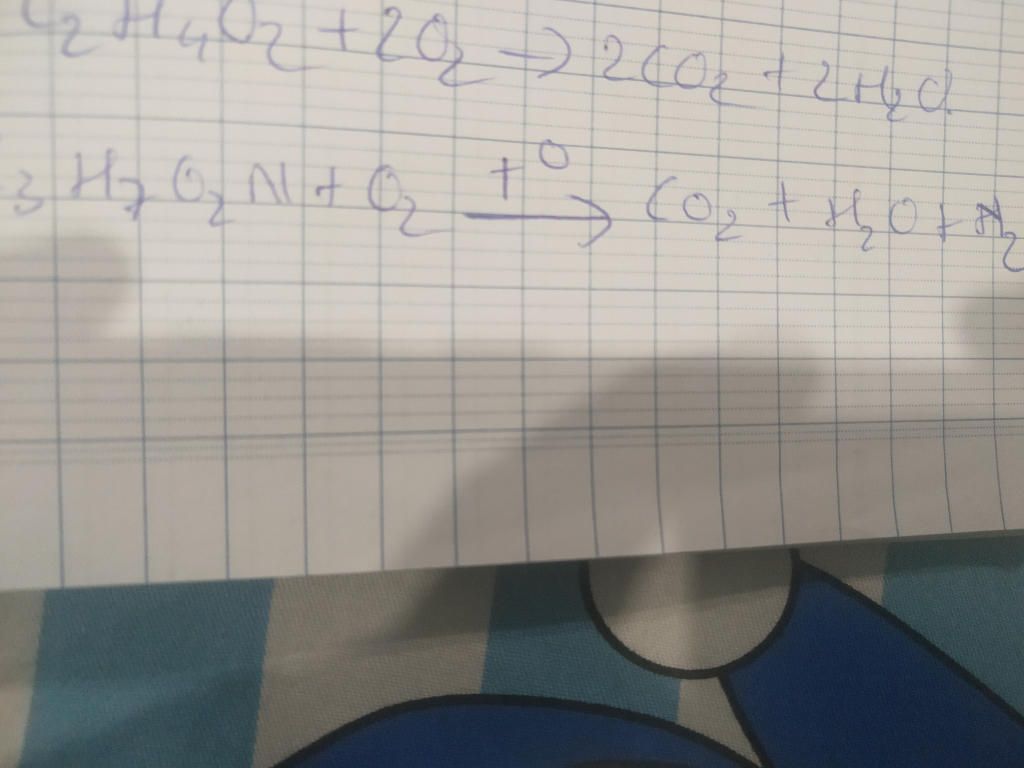 C₂H₄O₂ + 2O₂ → 2CO₂ + 2H₂O
₃H₇O₂N + O₂ —t⁰→ CO₂ + H₂O + N₂